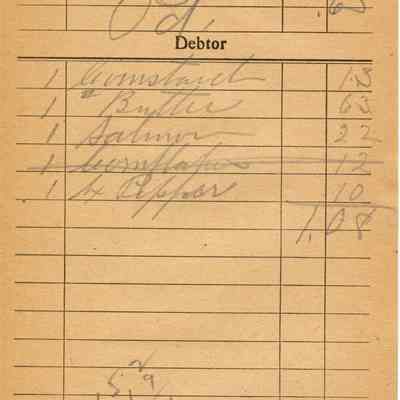 Pd.
Debtor
1 Cornstarch 13
1 # Butter 63
1 Salmon 22
1 Cornflakes 12
1 ¼ Pepper 10
1.08